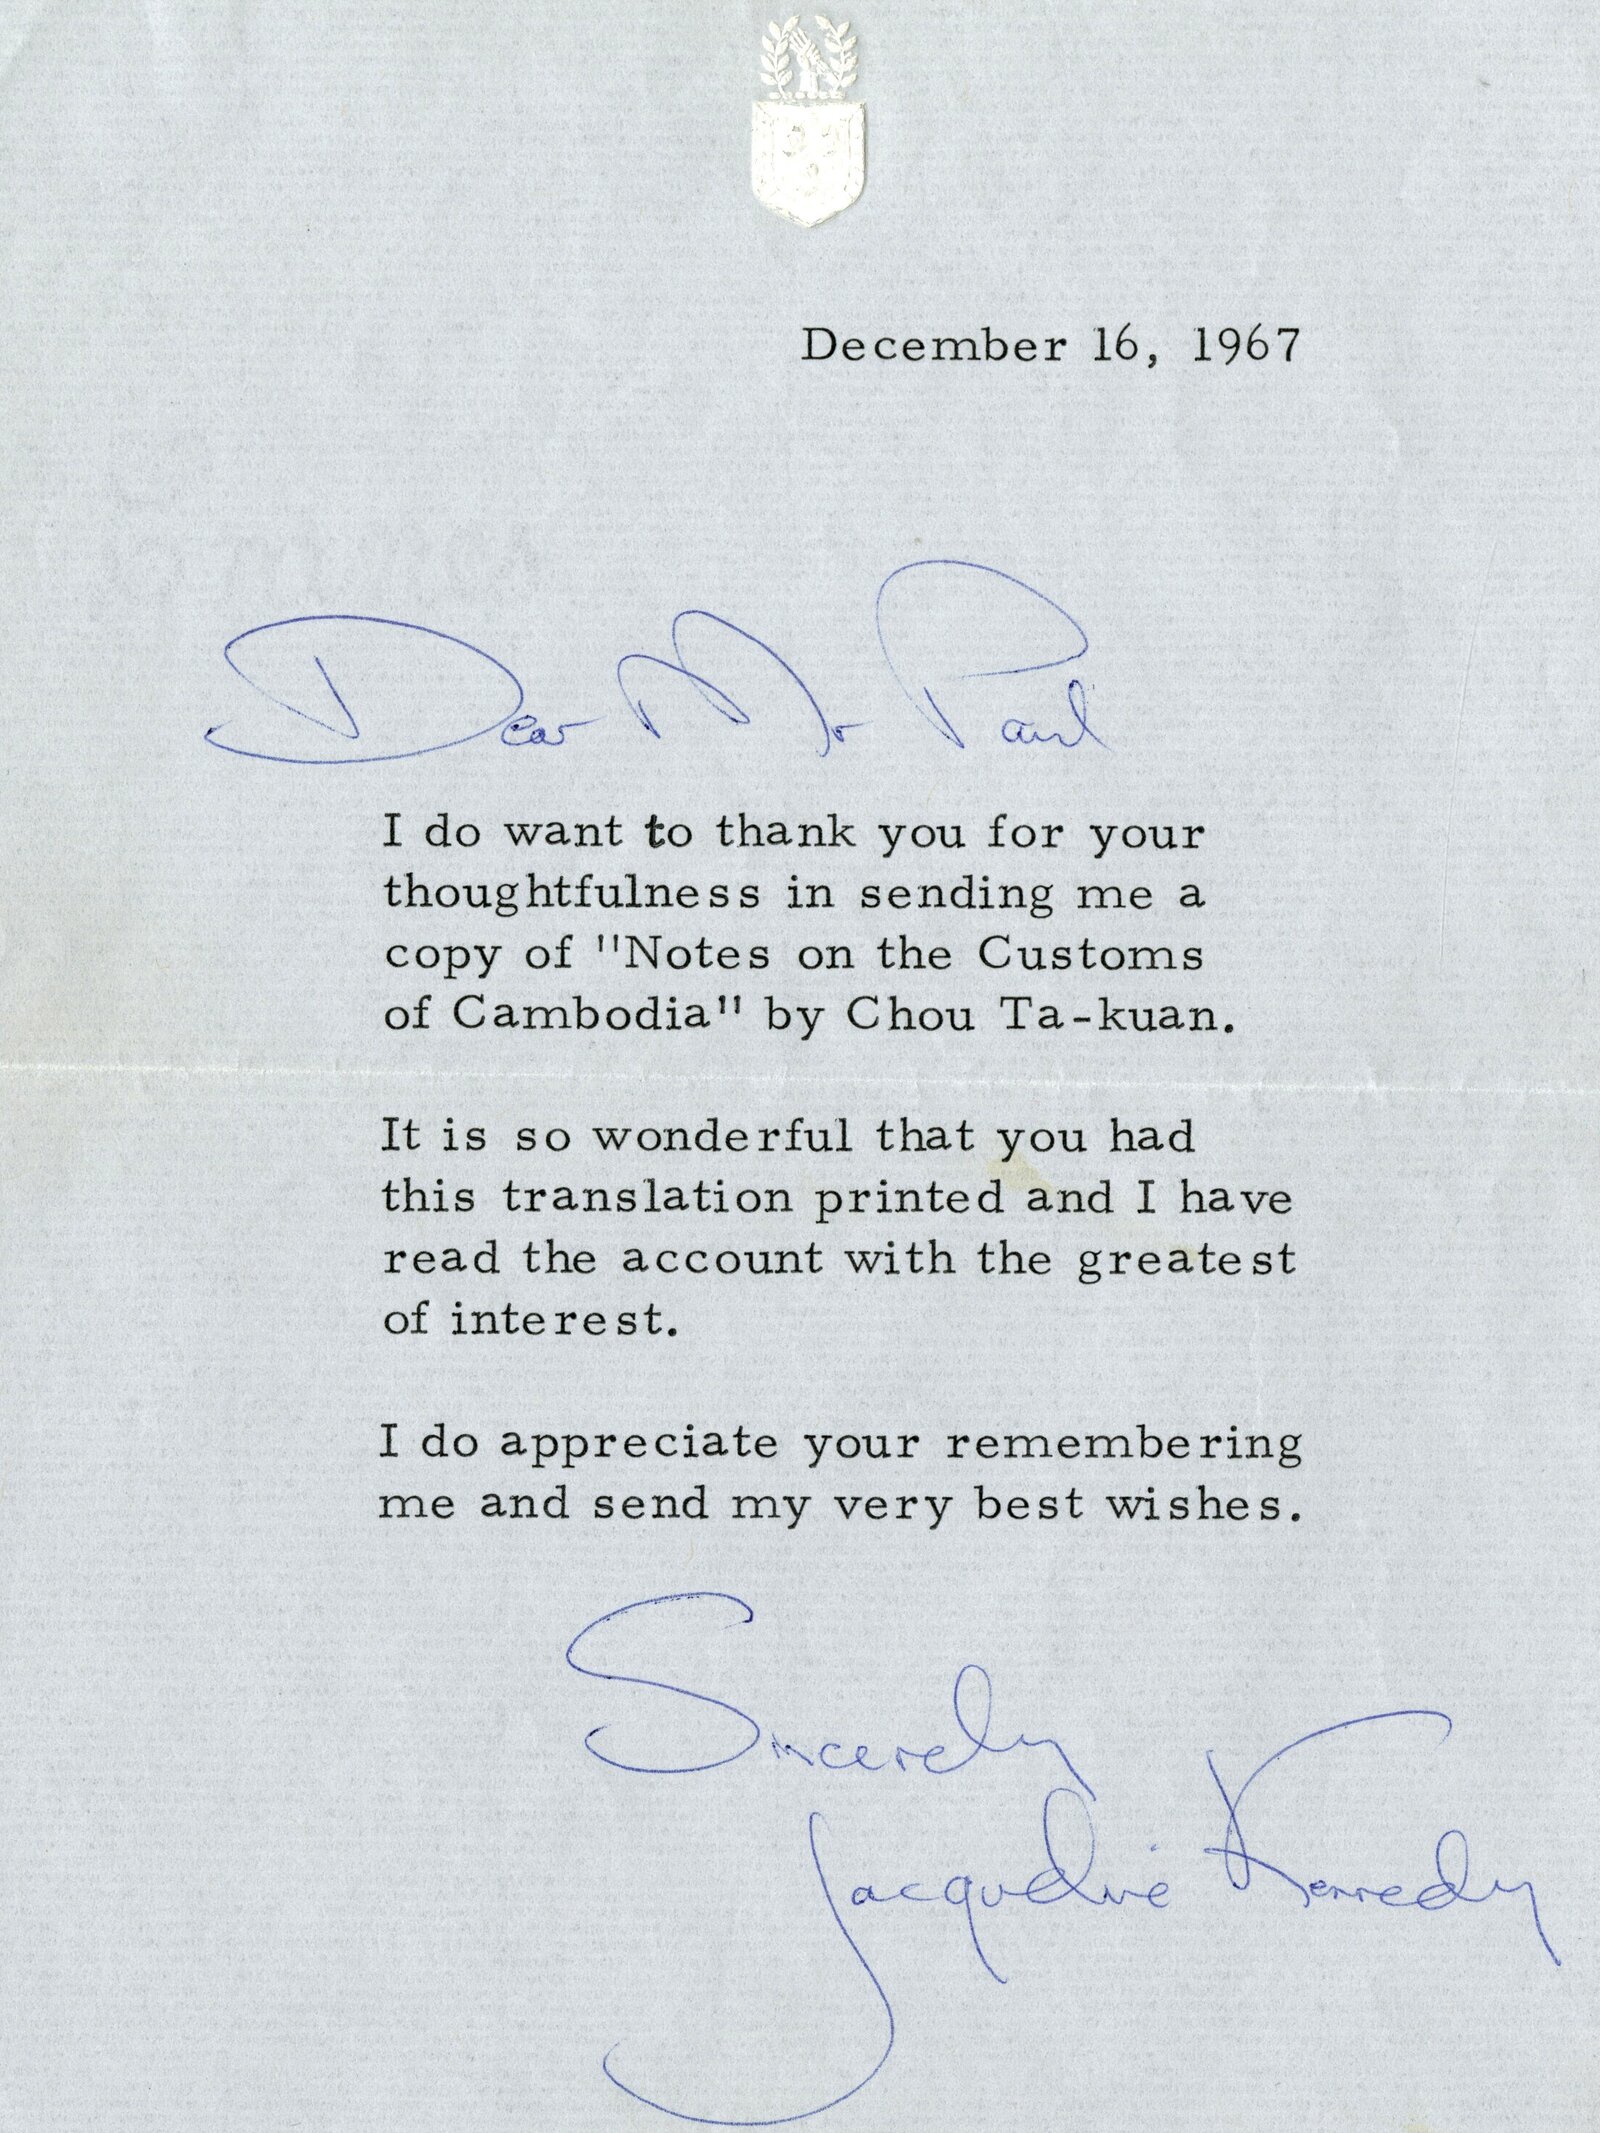 December 16, 1967
Dear Mr Paul
I do want to thank you for your
thoughtfulness in sending me a
copy of "Notes on the Customs
of Cambodia" by Chou Ta-kuan.
It is so wonderful that you had
this translation printed and I have
read the account with the greatest
of interest.
I do appreciate your remembering
me and send my very best wishes.
Sincerely
Jacqueline Kennedy